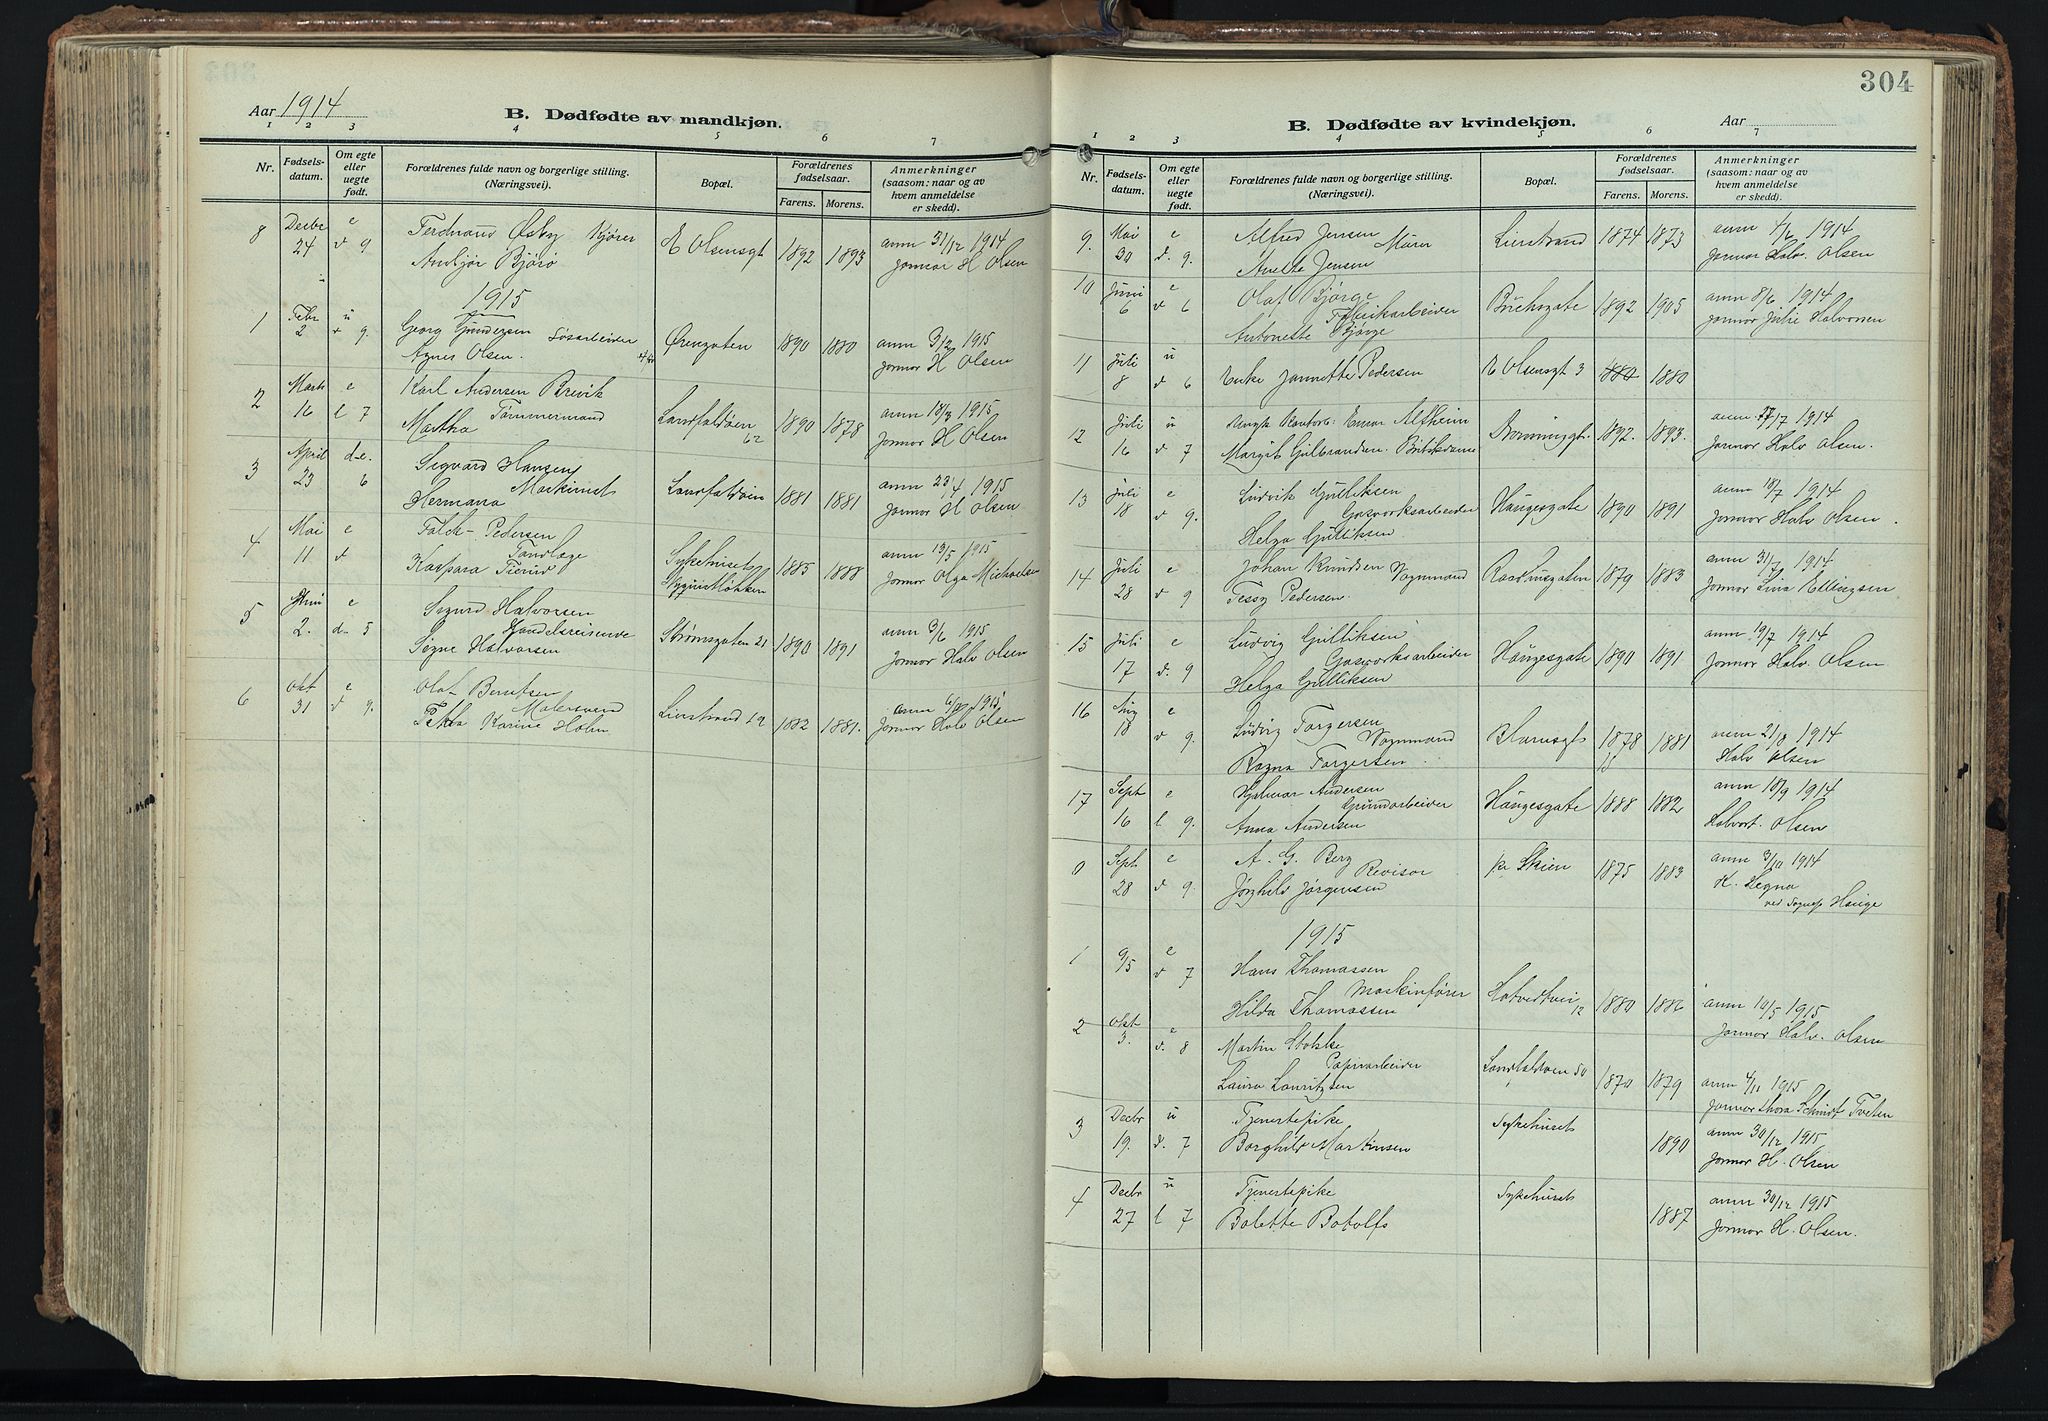 Aar 1914
B. Dødfødte av mandkjøn.
1 2 3 4 5 6 7
Nr.
Fødsels-
datum.
Om egte
eller
uegte
født.
Forældrenes fulde navn og borgerlige stilling.
(Næringsvei).
Bopæl.
Forældrenes
fødselsaar.
Farens. Morens.
Anmerkninger
(saasom: naar og av
hvem anmeldelse
er skedd).
8 Decbr e Ferdinand Kjører
24 d 9 E Olsensgt 1892 1893 anm 31/12 1914
jormor H Olsen
1915
1 Febr u
2 d 9. Georg Gundersen
Agnes Olsen. Øvregaten 1890 1880 anm 3/2 1915
jormor H Olsen
2 Marts e Karl Andersen Brevik
16 l 7 Tømmermand
Martha Landfaldøen 62 1890 1878 anm 18/3 1915
jormor H Olsen
3 April d.e. Sigvard Hansen
23 6 Maskinist
Hermana Landfaldøen 1881 1881 anm 23/4 1915
jormor H Olsen
4 Mai e Falck-Pedersen
11 d Tandlæge
Kaspara Sykehuset 1885 1888 anm 13/5 1915
jormor Olga Michaelsen
5 Juni e Sigurd Halvorsen
2. d. 5 Handelsreisende
Signe Halvorsen Strømsgaten 21 1890 1891 anm 3/6 1915
jormor Halv Olsen
6 Okt e Olaf Berntsen
31 d 9. Malersvend
Karine Holm Lierstrand 1882 1881. anm 1915
jormor Halv Olsen
304
B. Dødfødte av kvindekjøn.
Aar
1 2 3 4 5 6 7
Nr.
Fødsels-
datum.
Om egte
eller
uegte
født.
Forældrenes fulde navn og borgerlige stilling.
(Næringsvei).
Bopæl.
Forældrenes
fødselsaar.
Farens. Morens.
Anmerkninger
(saasom: naar og av
hvem anmeldelse
er skedd).
9. Mai e Alfred Jensen
20 d. 9. Murer Lierstrand 1874 1873 anm 4/6 1914
Anette Jensen jormor Halv. Olsen
10 Juni e Olaf Bjørge
6 d 6 Fabrikarbeider
Antonette Bjørge 1892 1905 anm 8/6 1914
jormor Julie Halvorsen
11 Juli u
8 d 6 Enke Jannette Pedersen E Olsensgt 3 1880 1880
12 Juli u Einar Altheim
16 d 7 Margit Gulbrandsen. 1892. 1893. anm 17/7 1914
jormor Halv Olsen.
13 Juli e Ludvik Gulliksen
18 d 9. Gasverksarbeider
Helga Gulliksen Haugesgate 1890 1891 anm 18/7 1914
jormor Halv Olsen.
14 Juli e Johan Knudsen Vognmand
28 d 9 Tessy Pedersen. Raadhusgaten 1879 1883 anm 31/7 1914
jormor Lina Ellingsen
15 Juli e Ludvig Gulliksen
17 d. 9 Gasverksarbeider
Helga Gulliksen Haugesgate 1890 1891 anm 19/7 1914
jormor Halv. Olsen
16 Aug e Ludvig Torgersen
18 d 9. Vognmand
Ragna Torgersen. 1878 1881 anm 21/8 1914
Halv Olsen
17 Sept e Hjalmar Andersen
16 l 9. Grundarbeider
Anna Andersen Haugesgate 1888 1882 anm 18/9 1914
Halvort. Olsen
0 Sept e A. G. Berg
28 d 9. Revisor
Jørgensen pr Skien 1875 1883 anm 3/10 1914
K. Hegna
ved Sognep Hauge
1915
1 9/5 e
d 7 Hans Thomassen
Maskinfører
Hilda Thomassen 12 1880 1886 anm 10/5 1915
jormor Halv. Olsen
2 Okt e
3. d. 8 Martin
Papirarbeider
Laura Lauritzen Landfaldøen 50 1870 1879 anm 4/11 1915
jormor Thora Schmidt Tveten
3 Decbr u Tjenestepike
19. d. 7 Borghild Martinsen Sykehuset 1890 anm 30/12 1915
jormor H. Olsen
4 Decbr u Tjenestepike
27 l 7 Bolette Botolfs Sykehuset 1887 anm 30/12 1915
jormor H. Olsen.